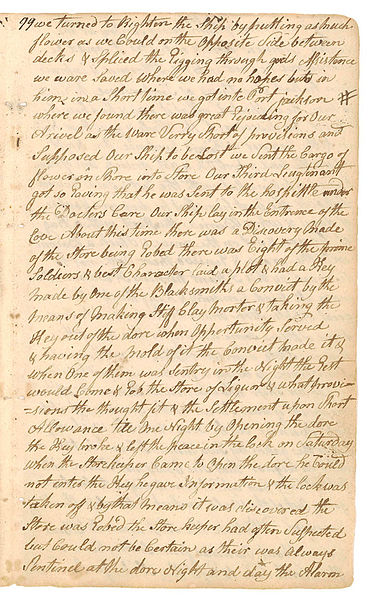 99 we turned to Righten the Ship by putting as much
flower as we Could on the Opposite Side between
decks & Spliced the Riging through gods assistence
we ware Saved Where we had no hopes but in
him in a Short time we got into Port Jackson #
where we found there was great Rejoicing for Our
Arivel as the Ware Verry Short of provisions and
Supposed Our Ship to be Lost we Sent the Cargo of
flower on Shore into Store Our Third Lieutinant
got so Raving that he was Sent to the hospittle under
the Doctors Care Our Ship lay in the Entrence of the
Cove About this time there was a Discovery made
of the Store being Robed there was Eight of the prime
Soldiers & best Character laid a plot & had a Key
made by One of the Blacksmiths a Convict by the
Means of Making Stif Clay Morter & taking the
Key out of the dore when Opportunity Served
& having the Mold of it the Convict made it &
when One of them was Sentry in the Night the Rest
would Come & Rob the Store of Liquor & what Provi-
-sions the thought fit & the Settlement upon Short
Allowance till One Night by Opening the dore
the Key broke & left the peace in the Lock on Saturday
when the Storekeeper Came to Open the dore he Could
not enter the Key he gave Information & the lock was
taken off & by that Means it was discovered the
Store was Robed the Store keeper had often Suspected
but Could not be Certain as their was Always
Sentinel at the dore Night and day the Alarm